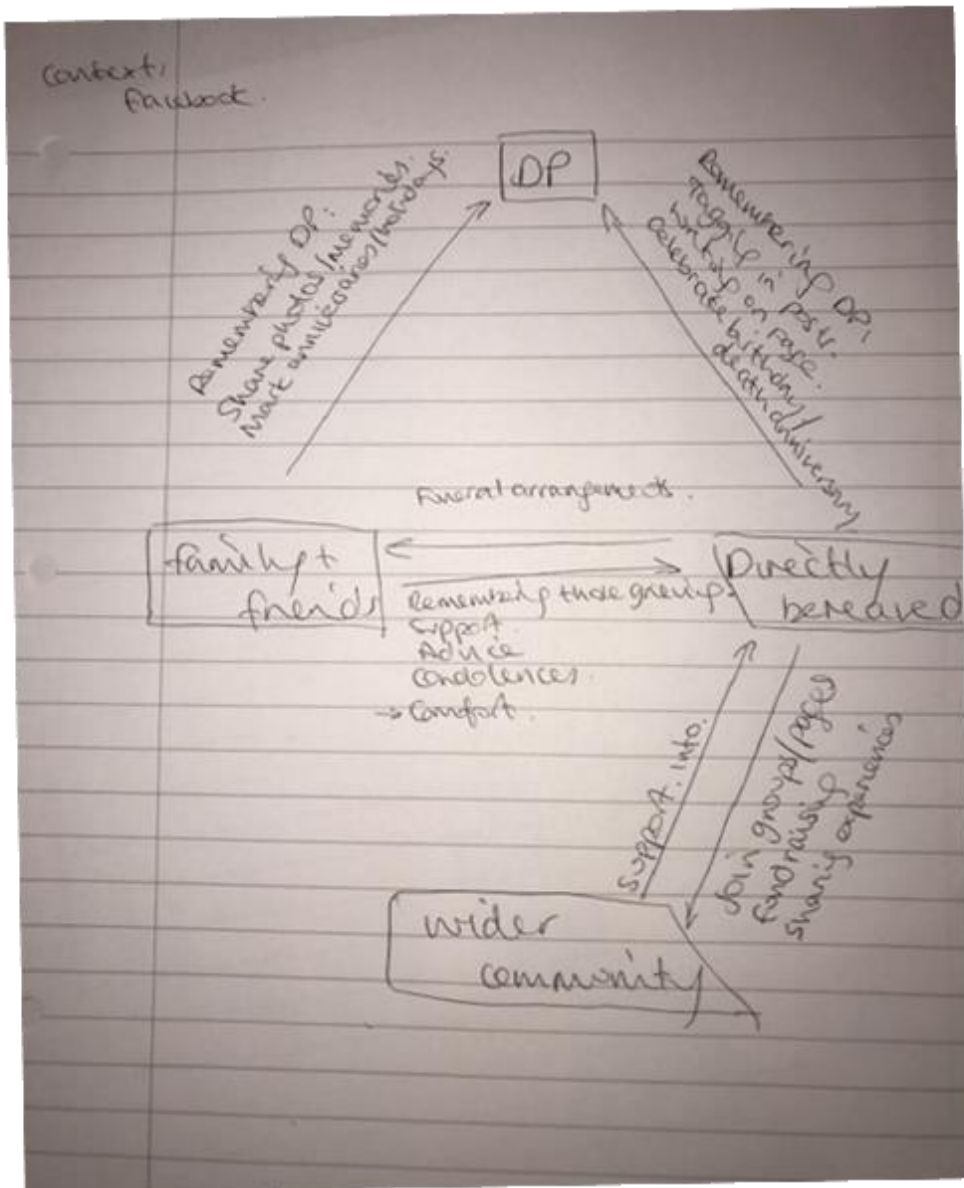 Context:
Facebook.
DP
Remembering DP:
Share photos/memories.
Mark anniversaries/holidays.
Remembering DP:
Tagging in posts.
Writing on page.
Celebrate birthday/
death anniversary
Funeral arrangements.
family +
friends
Directly
bereaved
Remembering those grieving
Support
Advice
Condolences.
→ Comfort.
Support. info.
Join groups/pages
fundraising
sharing experiences
wider
community